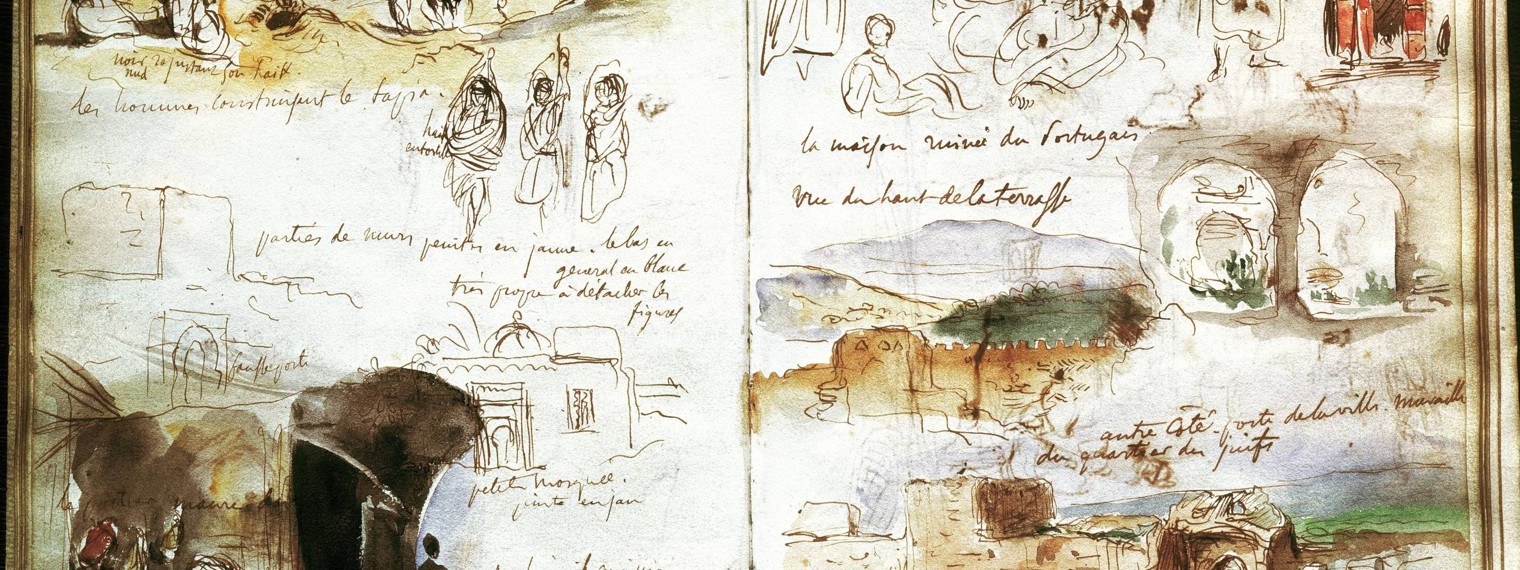 nud
les hommes construisent le tapia.
parties de murs peintes en jaune. le bas en
general en blanc
très propre à détacher les
figures
fausse porte
petite mosquée.
la maison ruinée du Portugais
vue du haut de la terrasse
autre côté. porte de la ville. muraille
du quartier des juifs